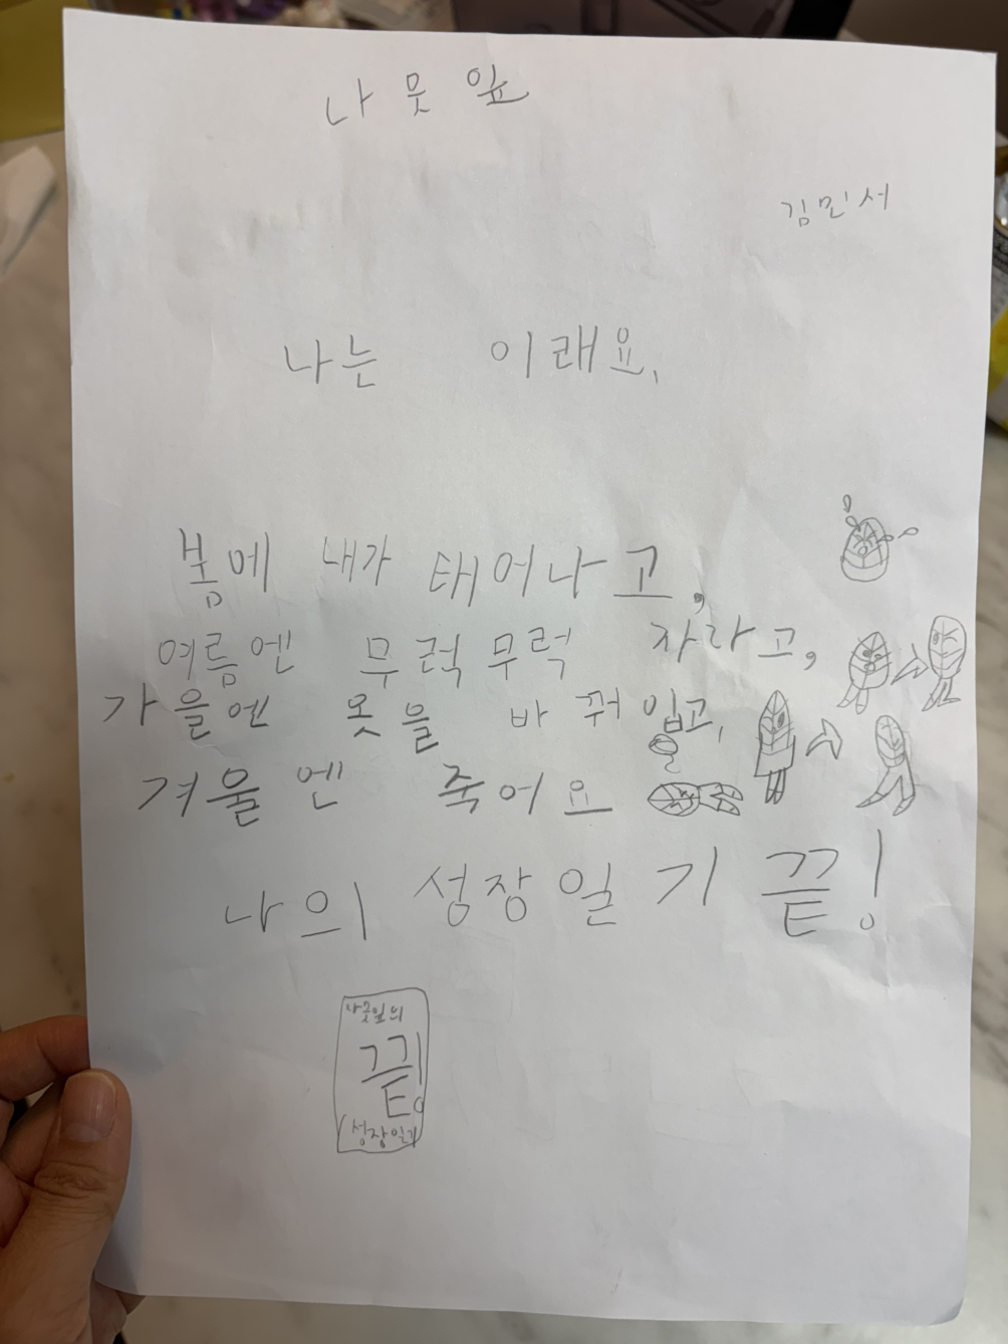 나뭇잎
김민서
나는 이래요.
봄에 내가 태어나고,
여름엔 무럭무럭 자라고,
가을엔 옷을 바꿔 입고,
겨울엔 죽어요
나의 성장일기 끝!
나뭇잎의
끝!
성장일기